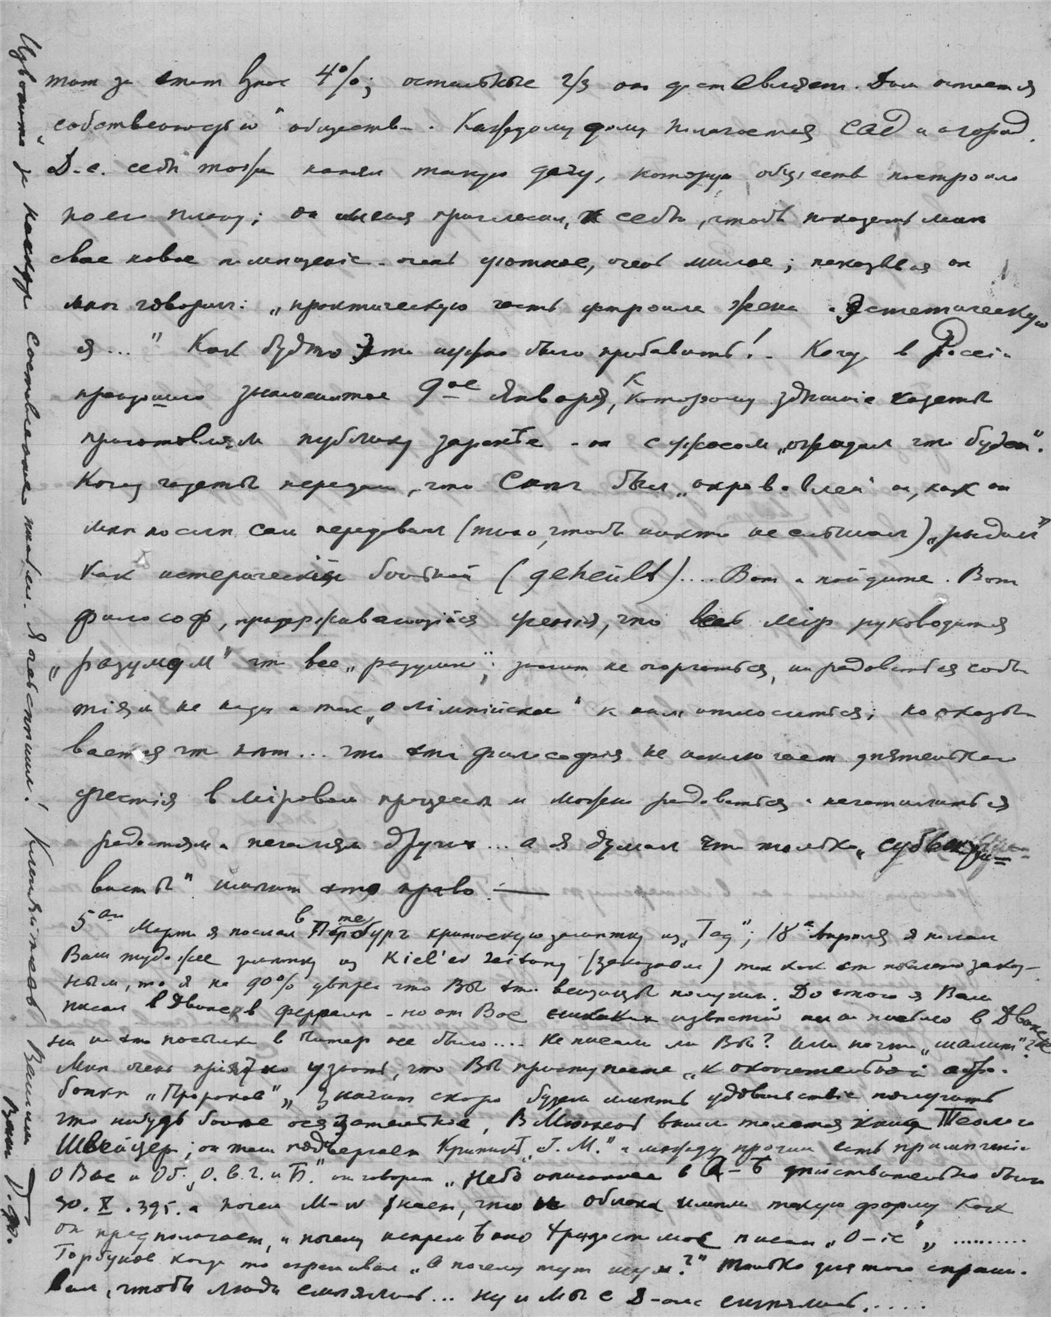 тит за этот взнос 4%; остальные 2/3 он доставляет. Дом остается
собственностью обществ. Каждому дому полагается сад и огород.
Д-с. себе тоже нанял такую дачу, которую общество построило
по его плану; он меня пригласил к себе, чтобы показать мне
свое новое помещение - очень уютное, очень милое; показывая он
мне говорил: „практическую часть устроила жена, эстетическую
я..." Как будто это нужно было прибавить! Когда в Россіи
произошло знаменитое 9ое Января, къ которому здешніе газеты
приготовляли публику заранѣе - он с ужасом „ожидал что будет".
Когда газеты передали, что Спб. был „окровавлен" он, как он
мнѣ после сам передавал (тихо, чтобы никто не слышал) „рыдал"
как истерический больной (geheult).... Вот и пойдите. Вот
философ, придерживающійся ученія, что весь мір руководится
„разумом" что все „разумно"; значит не огорчаться, ни радоваться собы-
тіям не надо а так „олімпійски" к ним относиться; но оказы-
вается что нет... что эта философія не исключает деятельнаго
участія в міровом процессѣ и можно радоваться и печалиться
радостям и печалям других... а я думал что только „субъекти-
висты" имеют это право. —
5ое Марта я послал в Петербург критическую заметку из „Tag"; 18 апреля я послал
Вам туда же заметку из Kiel'er Zeitung (заказом) так как это послано заказ-
ным, то я на 90% уверен что Вы эту вещицу получили. До этого я Вам
писал в Двинск в феврале - но от Вас никаких известий ни на письмо в Двинск
ни на эту посылку в Питер не было.... Не писали ли Вы? Или почта „шалит"?
Мне очень пріятно узнать, что Вы приступаете „к окончательной обра-
ботке „Пророков"", значит скоро будем иметь удовольствіе получить
что нибудь более осязательное. В Мюнхене вышла толстая книга Теолога
Швейцер; он там подвергает критикѣ „J. M." и между прочим есть примечаніе
о Вас и Об. „О. в. г. и Б." он говорит „Небо описанное в О-Б действительно было
30. X. 395. а почем М-в знает, что и облака имели такую форму как
он предполагает, и почему непременно Хризостомос писал „О-іе"" ..........
Горбунов когда то спрашивал „а почему тут шум?" только для того спраши-
вал, чтобы люди смеялись... ну и мы с Д-ом смеялись.....
Извините за наскоро составленное письмо. Я очень спешил! Кланяйтесь Вашим
Ваш